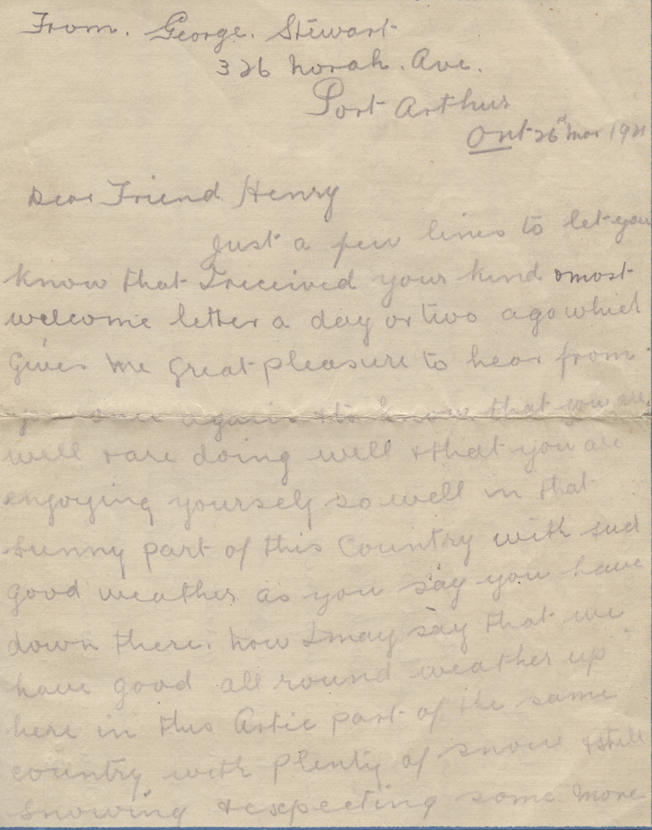 From. George. Stewart
326 Norah. Ave.
Port Arthur
Ont 26 Mar
Dear Friend Henry
Just a few lines to let you
know that I received your kind & most
welcome letter a day or two ago which
Gives me great pleasure to hear from
once again & to know that you are
well & are doing well & that you are
enjoying yourself so well in that
sunny part of this Country with such
good weather as you say you have
down there. now I may say that we
have good all round weather up
here in this Artic part of the same
country with plenty of snow & still
snowing & expecting some more